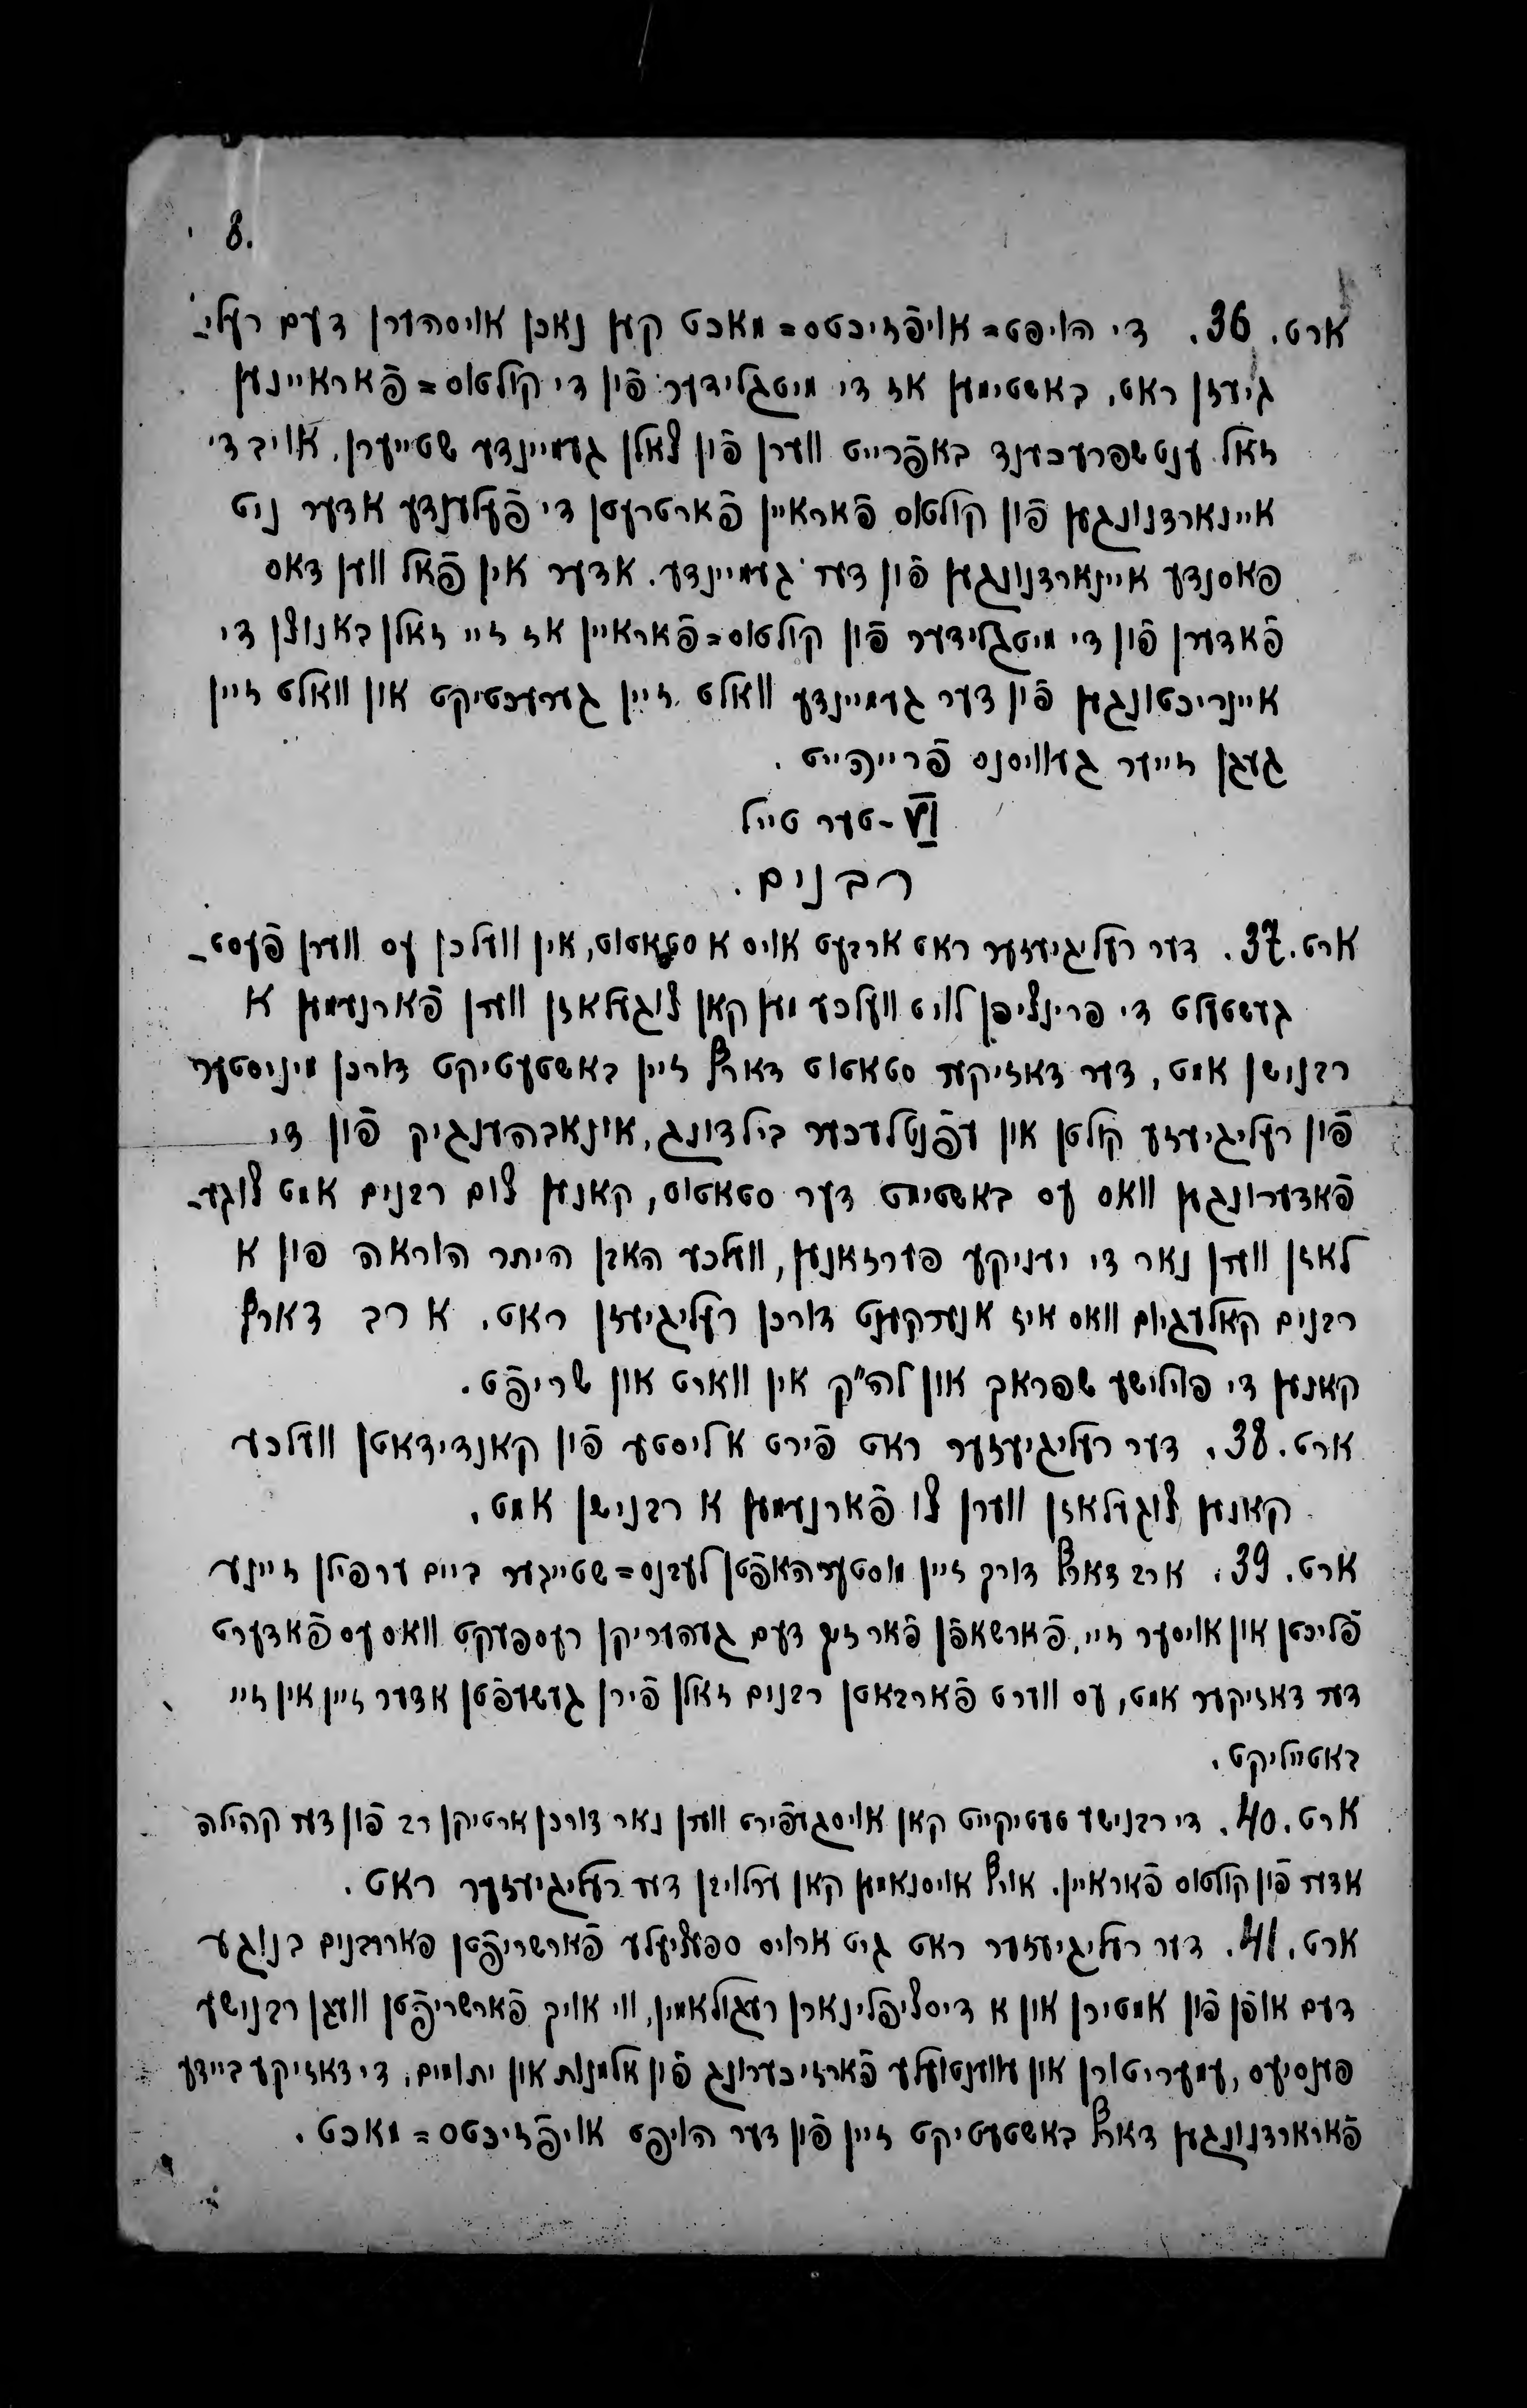 8.
ארט. 36. די הויפט=אויפֿזיכטס=מאכט קען נאכן אויסהערן דעם רעלי-
גיעזן ראט, באשטימען אז די מיטגלידער פֿין די קולטוס=פֿאראיינען
זאל ענטשפרעכענד באפֿרייט ווערן פֿון צאלן געמיינדע שטייערן, אויב די
איינארדנונגען פֿון קולטוס פֿאראיין פֿארטרעטן די פֿעלענדע אדער ניט
פאסנדע איינארדנונגען פֿון דער געמיינדע. אדער אין פֿאל ווען דאס
פֿאדערן פֿון די מיטגלידער פֿון קולטוס=פֿאראיין אז זיי זאלן באנוצן די
איינריכטונגען פֿין דער געמיינדע וואלט זיין גערעכטיקט און וואלט זיין
געגן זייער געוויסנס פֿרייהייט.
VI-טער טייל
רבנים.
ארט. 37. דער רעליגיעזער ראט ארבעט אויס א סטאטוט, אין וועלכן עס ווערן פֿעסט-
געשטעלט די פרינציפן לויט וועלכע מען קאן צוגעלאזן ווערן פֿארנעמען א
רבנישן אמט, דער דאזיקער סטאטוט דארף זיין באשטעטיקט דורכן מיניסטער
פֿון רעליגיעזע קולטן און עפֿנטלעכער בילדונג, אינאבהענגיק פֿון די
פֿאדערונגען וואס עס באשטימט דער סטאטוט, קאנען צום רבנים אמט צוגע-
לאזן ווערן נאר די יעניקע פערזאנען, וועלכע האבן היתר הוראה פון א
רבנים קאלעגיום וואס איז אנערקענט דורכן רעליגיעזן ראט. א רב דארף
קאנען די פוילישע שפראך און לה״ק אין ווארט און שריפֿט.
ארט. 38. דער רעליגיעזער ראט פֿירט א ליסטע פֿין קאנדידאטן וועלכע
קאנען צוגעלאזן ווערן צו פֿארנעמען א רבנישן אמט.
ארט. 39. א רב דארף דורך זיין מוסטערהאפֿטן לעבנס=שטייגער ביים ערפילן זיינע
פֿליכטן און אויסער זיי, פֿארשאפֿן פֿאר זיך דעם געהעריקן רעספעקט וואס עס פֿאדערט
דער דאזיקער אמט, עס ווערט פֿארבאטן רבנים זאלן פֿירן געשעפֿטן אדער זיין אין זיי
באטייליקט.
ארט. 40. די רבנישע טעטיקייט קאן אויסגעפֿירט ווערן נאר דורכן ארטיקן רב פֿון דער קהילה
אדער פֿון קולטוס פֿאראיין. אויף אויסנאמען קאן ערלויבן דער רעליגיעזער ראט.
ארט. 41. דער רעליגיעזער ראט גיט ארויס ספעציעלע פֿארשריפֿטן פאר רבנים בנוגע
דעם אופֿן פֿון אמטירן און א דיסציפלינארן רעגולאמין, ווי אויך פֿארשריפֿטן וועגן רבנישע
פענסיעס, עמעריטורן און עווענטועלע פֿארזיכערונג פֿין אלמנות און יתומים. די דאזיקע ביידע
פֿארארדנונגען דארף באשטעטיקט זיין פֿין דער הויפט אויפֿזיכטס=מאכט.